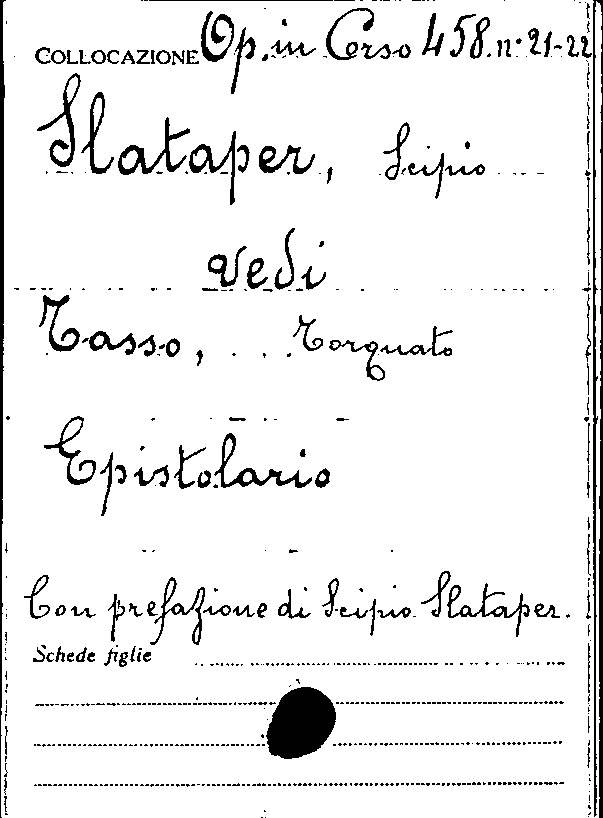 COLLOCAZIONE Op. in Corso 458. n. 21-22
Slataper, Scipio
vedi
Tasso, Torquato
Epistolario
Con prefazione di Scipio Slataper.
Schede figlie